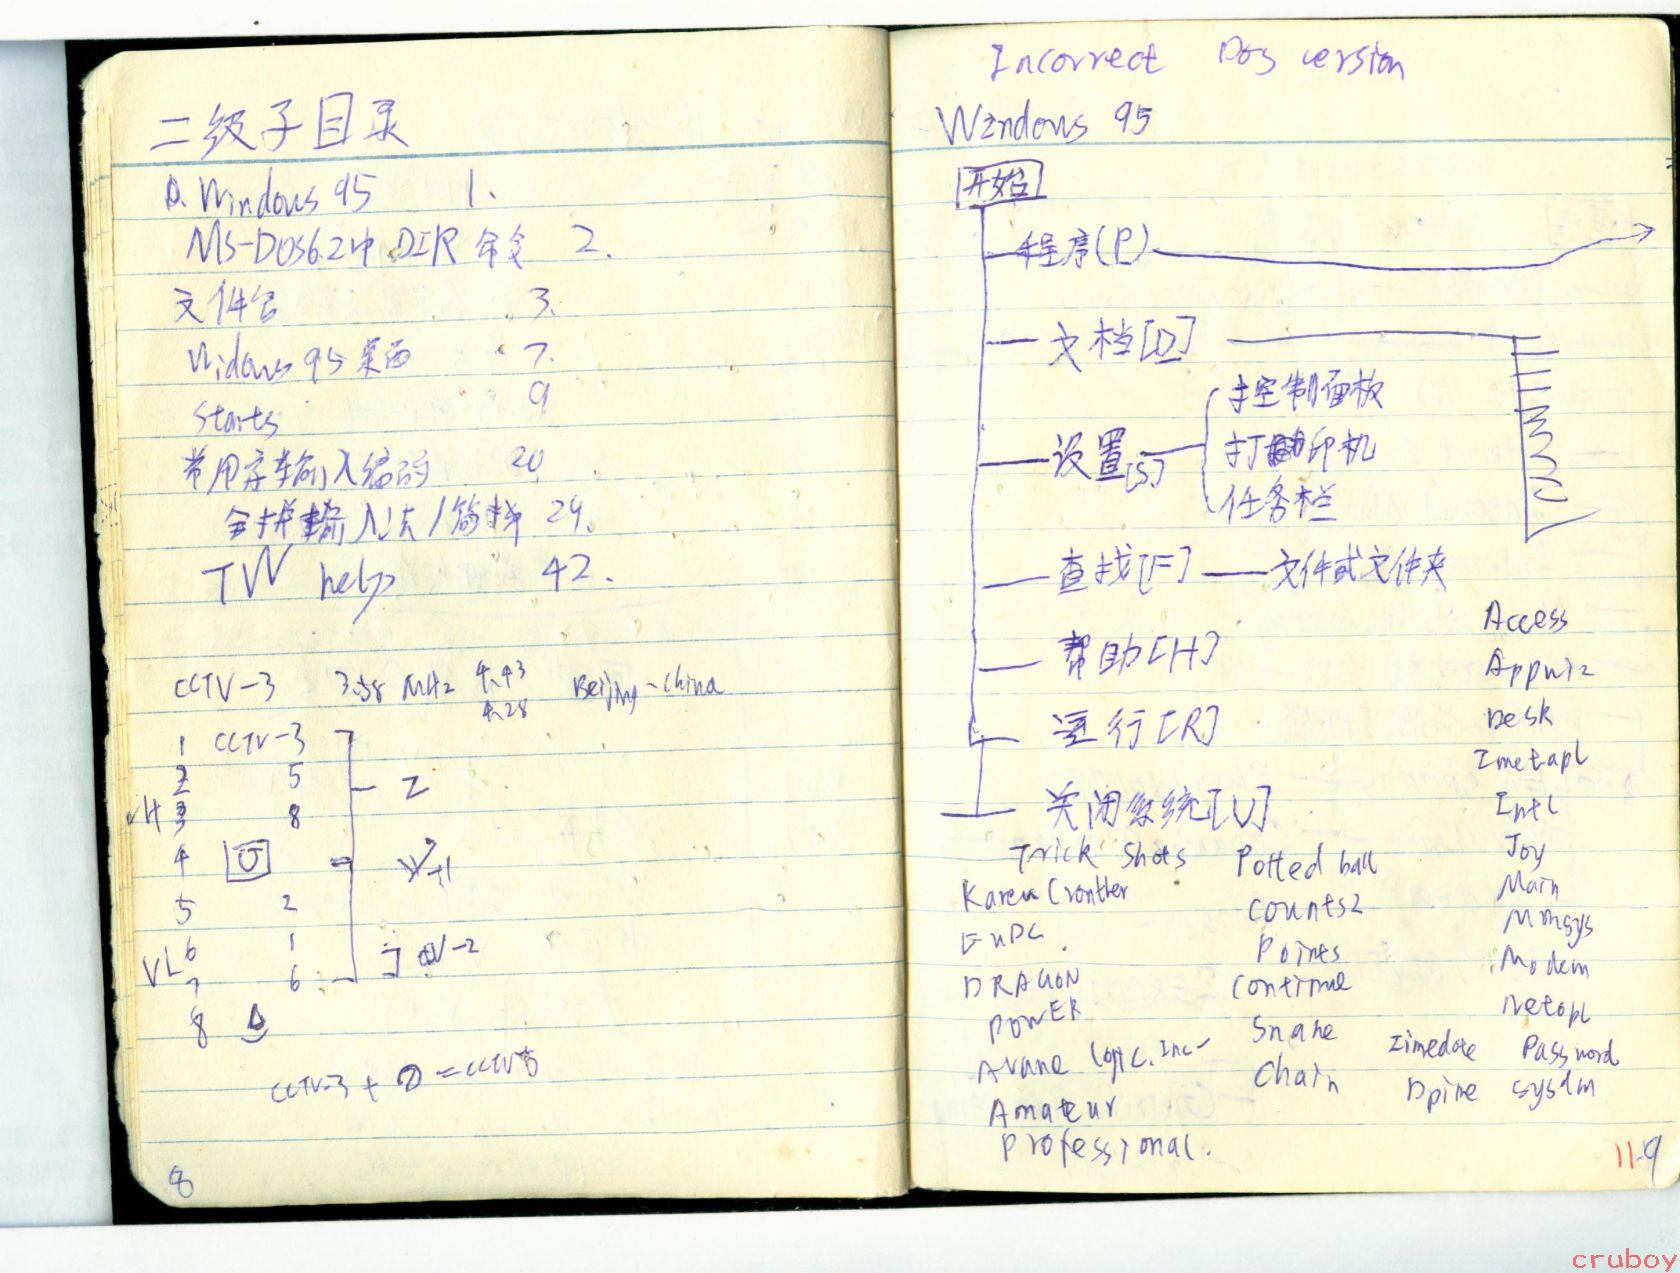 二级子目录
A. Windows 95 1.
MS-DOS6.2中DIR命令 2.
文件名 3.
Widows 95 桌面 7.
Starts 9
常用字输入编码 20
全拼输入法/简拼 24.
TW help 42.
CCTV-3 3.58 MHz 4.43 Beijing-China
4.28
1 CCTV-3
2 5 Z
VH 3 8
4 U
5 2
VL 6 1
7 6
8
CCTV-3 + = CCTV5
8
Incorrect Dos version
Windows 95
开始
程序(P)
文档[D]
设置[S]
控制面板
打印机
任务栏
查找[F] 文件或文件夹
帮助[H]
运行[R]
关闭系统[U]
Trick Shots
Karen Crowther
DRAGON
POWER
Logic. Inc
Amateur
Professional.
Potted ball
Counts2
Points
Continue
Snake
Chain
Access
Appwiz
Desk
Inetcpl
Intl
Joy
Main
Mmsys
Modem
Netcpl
Timedate Password
Sysdm
11.9
cruboy